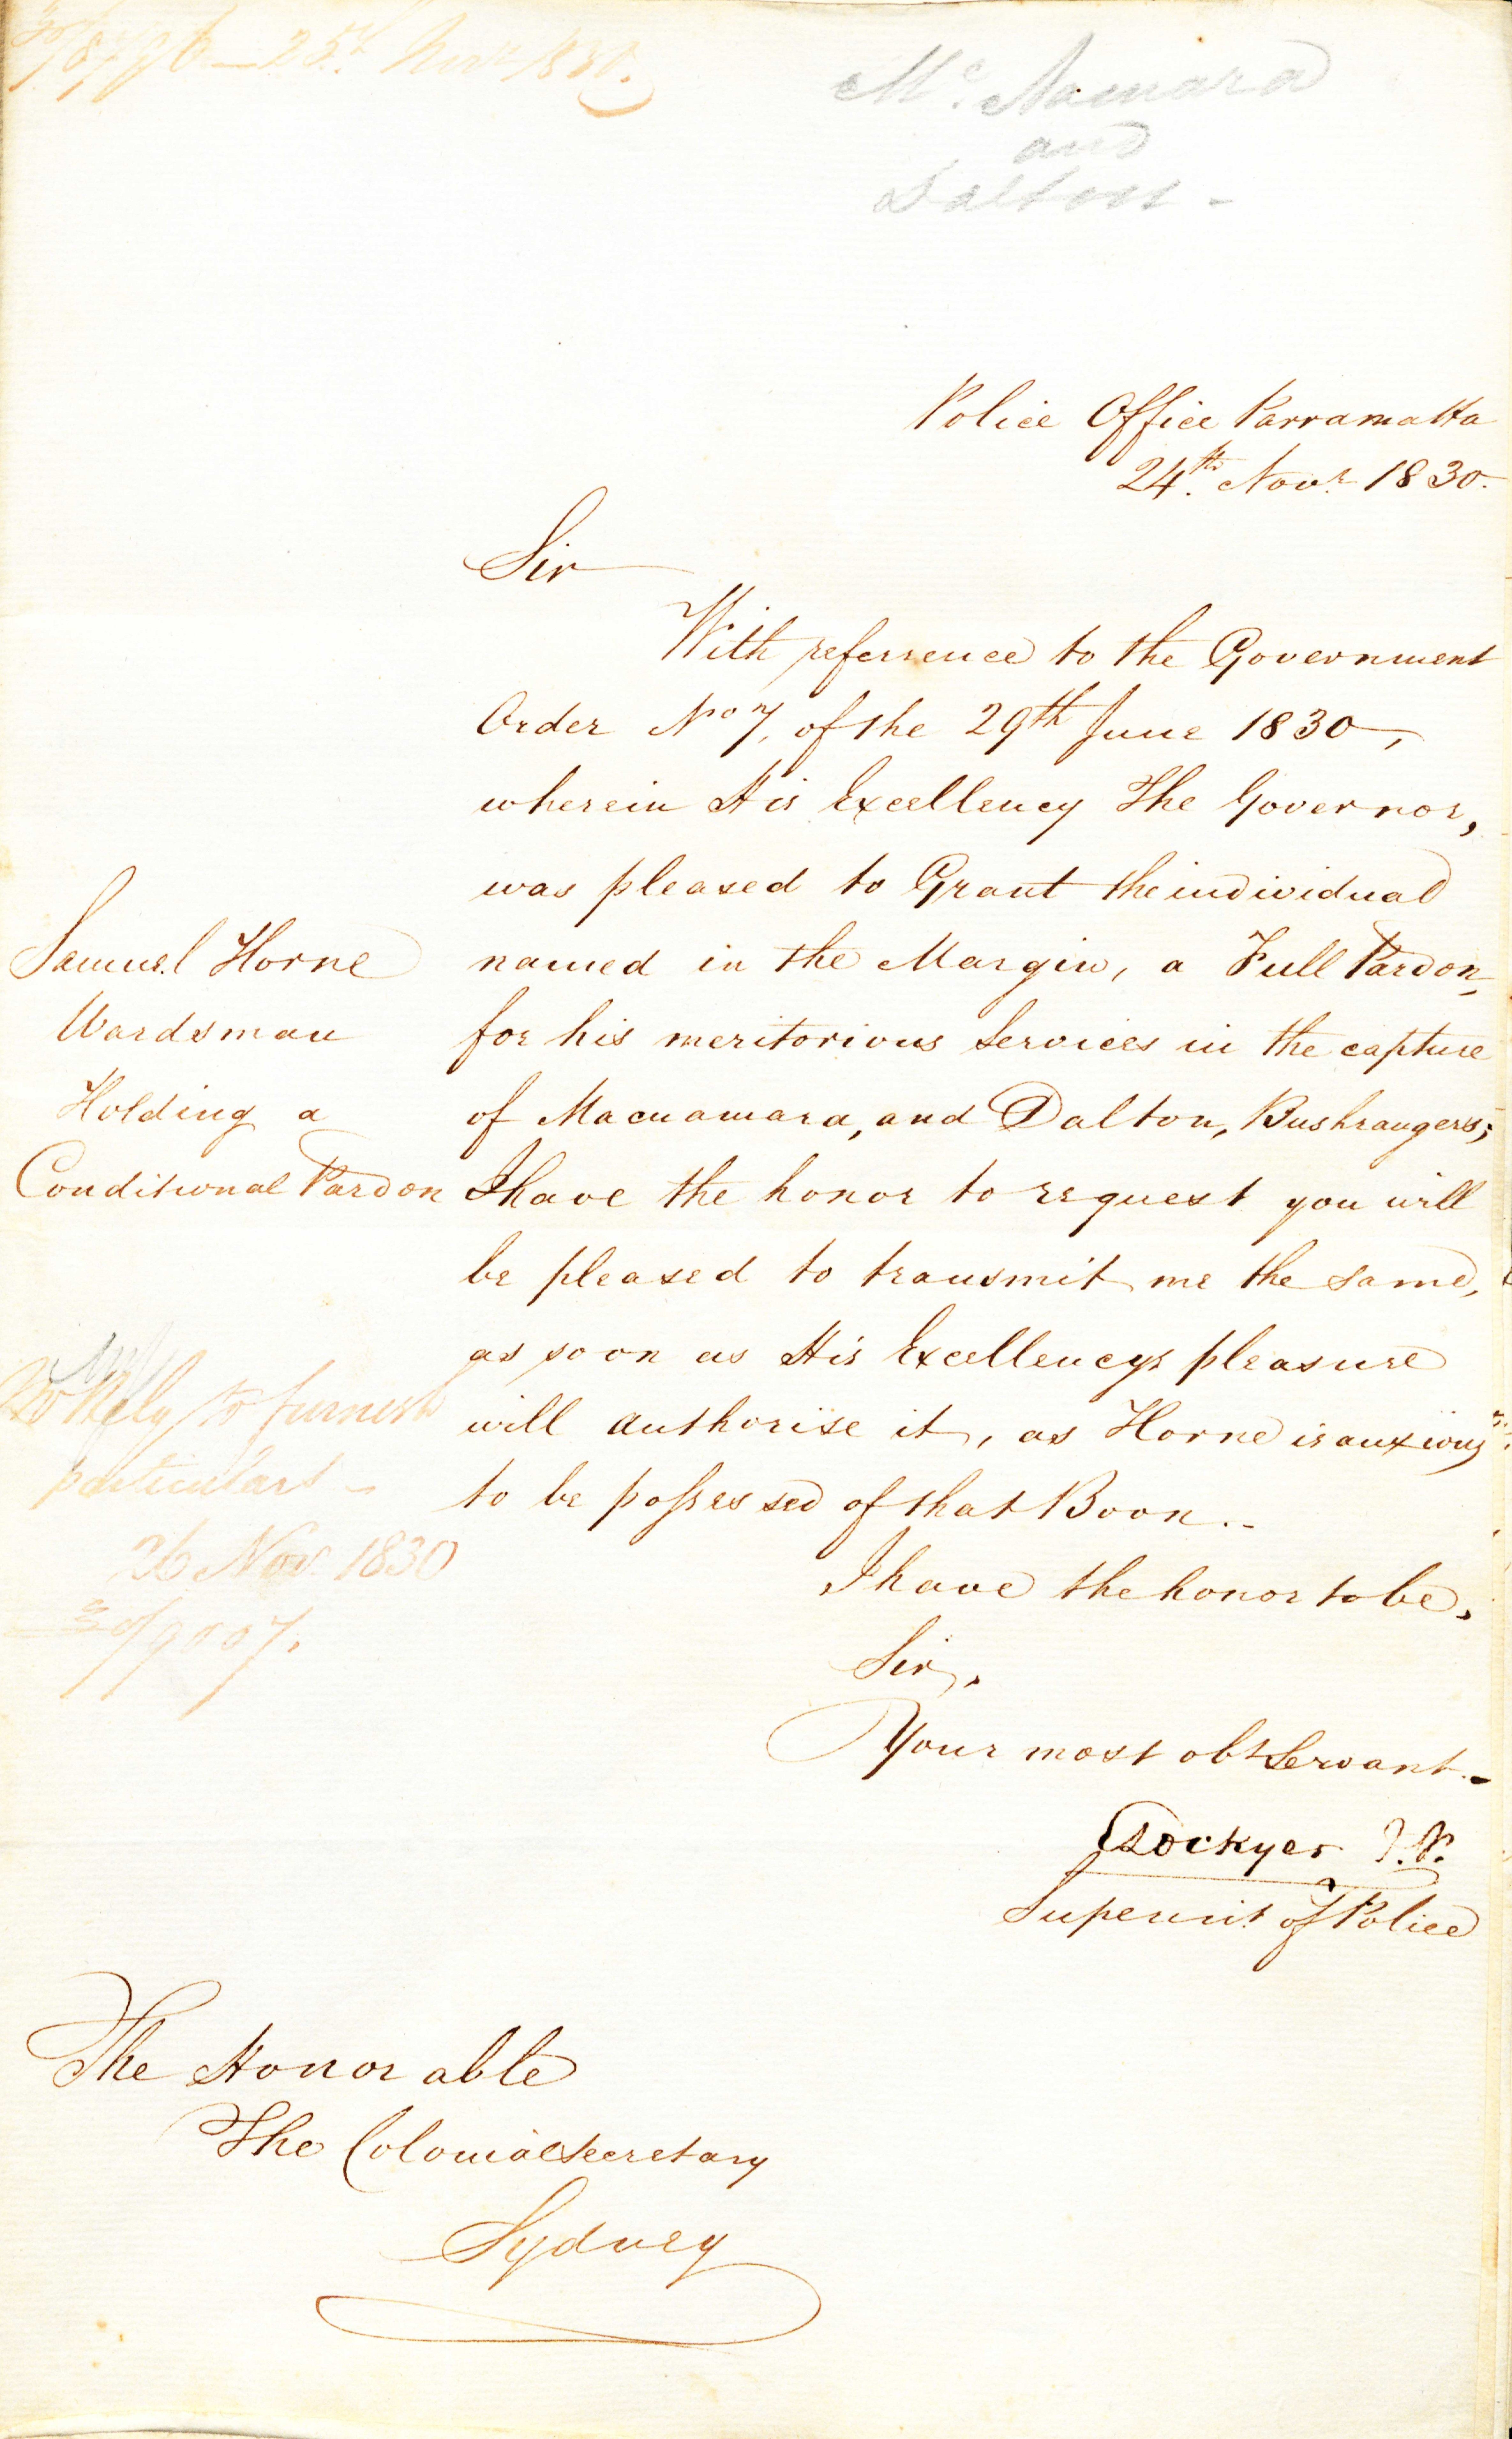 30/8796 - 25th Novr 1830.
Mc. Namara
and
Dalton -
Police Office Parramatta
24th. Novr. 1830.
Sir
With referrence to the Government
Order No 7, of the 29th June 1830,
wherein His Excellency The Governor,
was pleased to Grant the individual
Samuel Horne
Wardsman
Holding a
Conditional Pardon
named in the Margin, a Full Pardon
for his meritorious Services in the capture
of Macnamara, and Dalton, Bushrangers;
I have the honor to request you will
be pleased to transmit me the same,
as soon as His Excellencys pleasure
will authorise it, as Horne is anxious
to be possessed of that Boon..
to furnish
particulars -
26 Nov. 1830
30/9007.
I have the honor to be,
Sir,
Your most obt Servant.
Lockyer J.P.
Superint of Police
The Honorable
The Colonial Secretary
Sydney